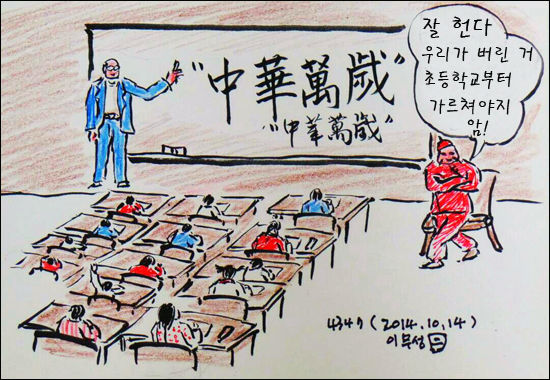 "中華萬歲"
"中華萬歲"
잘 헌다
우리가 버린 거
초등학교부터
가르쳐야지
암!
4347 (2014.10.14)
이무성